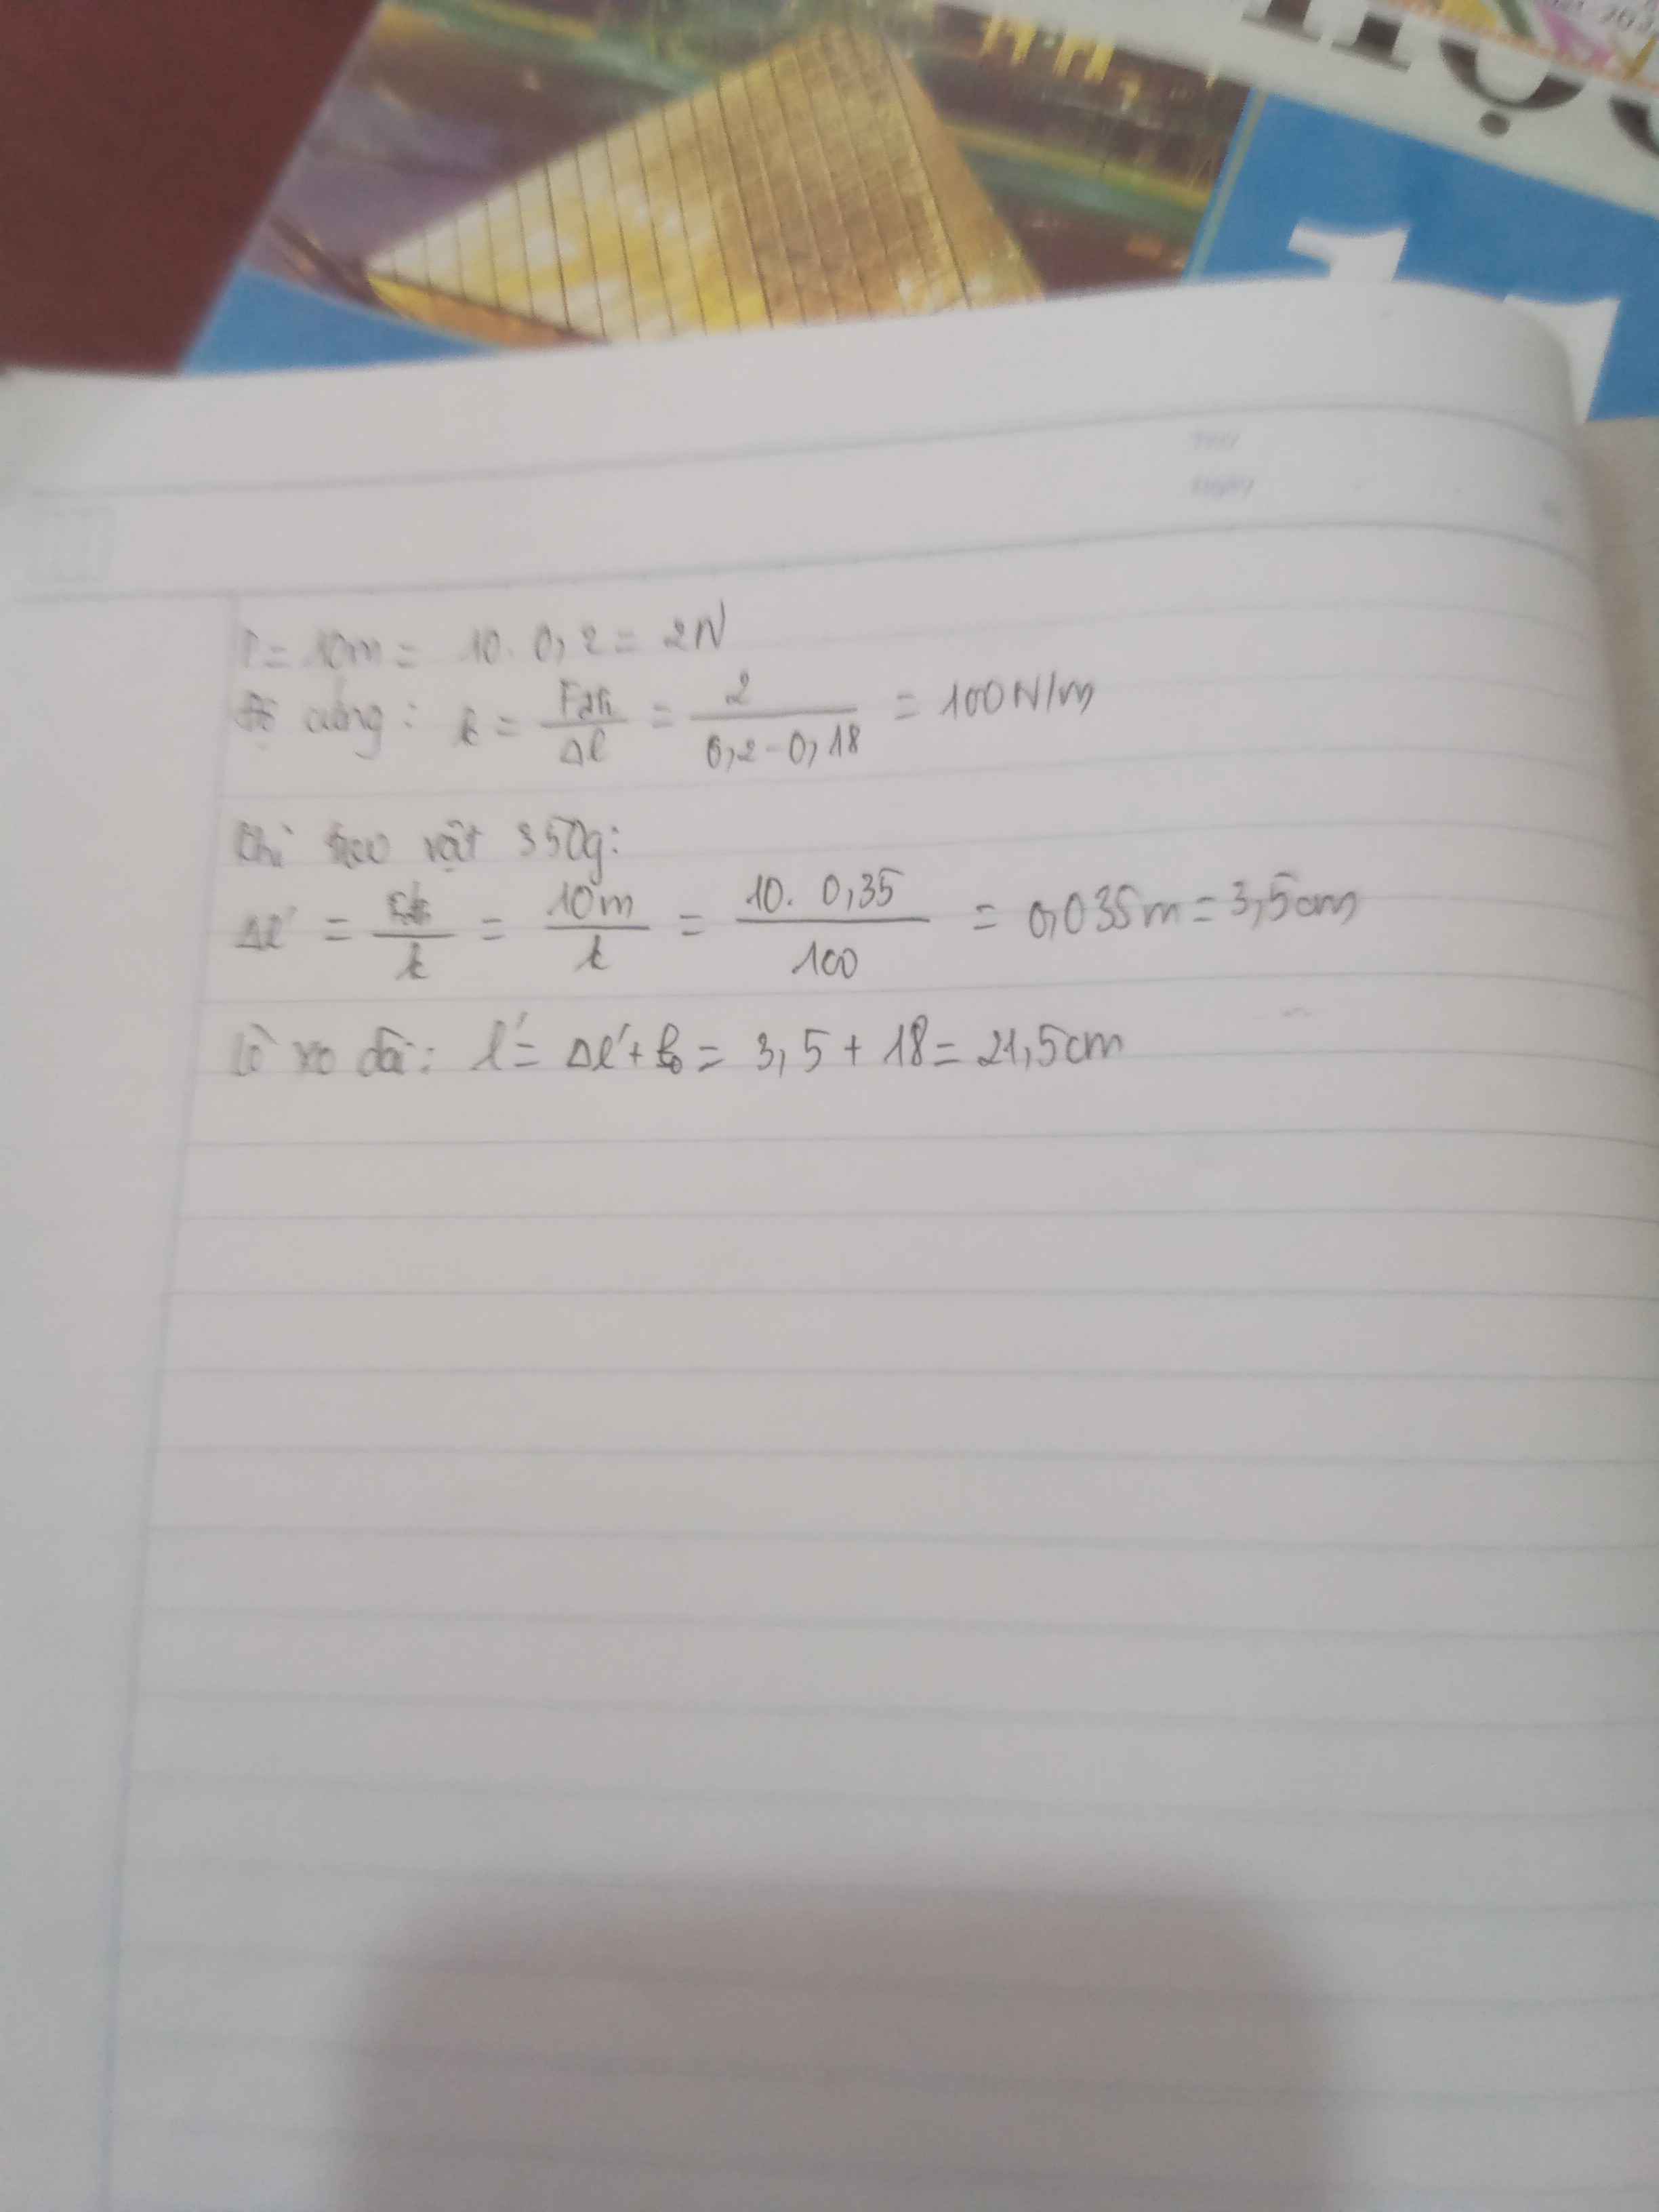 học
P = 10m = 10. 0,2 = 2N
Độ cứng : k = Fđh/Δl = 2/(0,2-0,18) = 100N/m
Khi treo vật 350g:
Δl' = Fđh/k = 10m/k = 10. 0,35/100 = 0,035m = 3,5cm
Lò xo dài: l' = Δl' + lo = 3,5 + 18 = 21,5cm